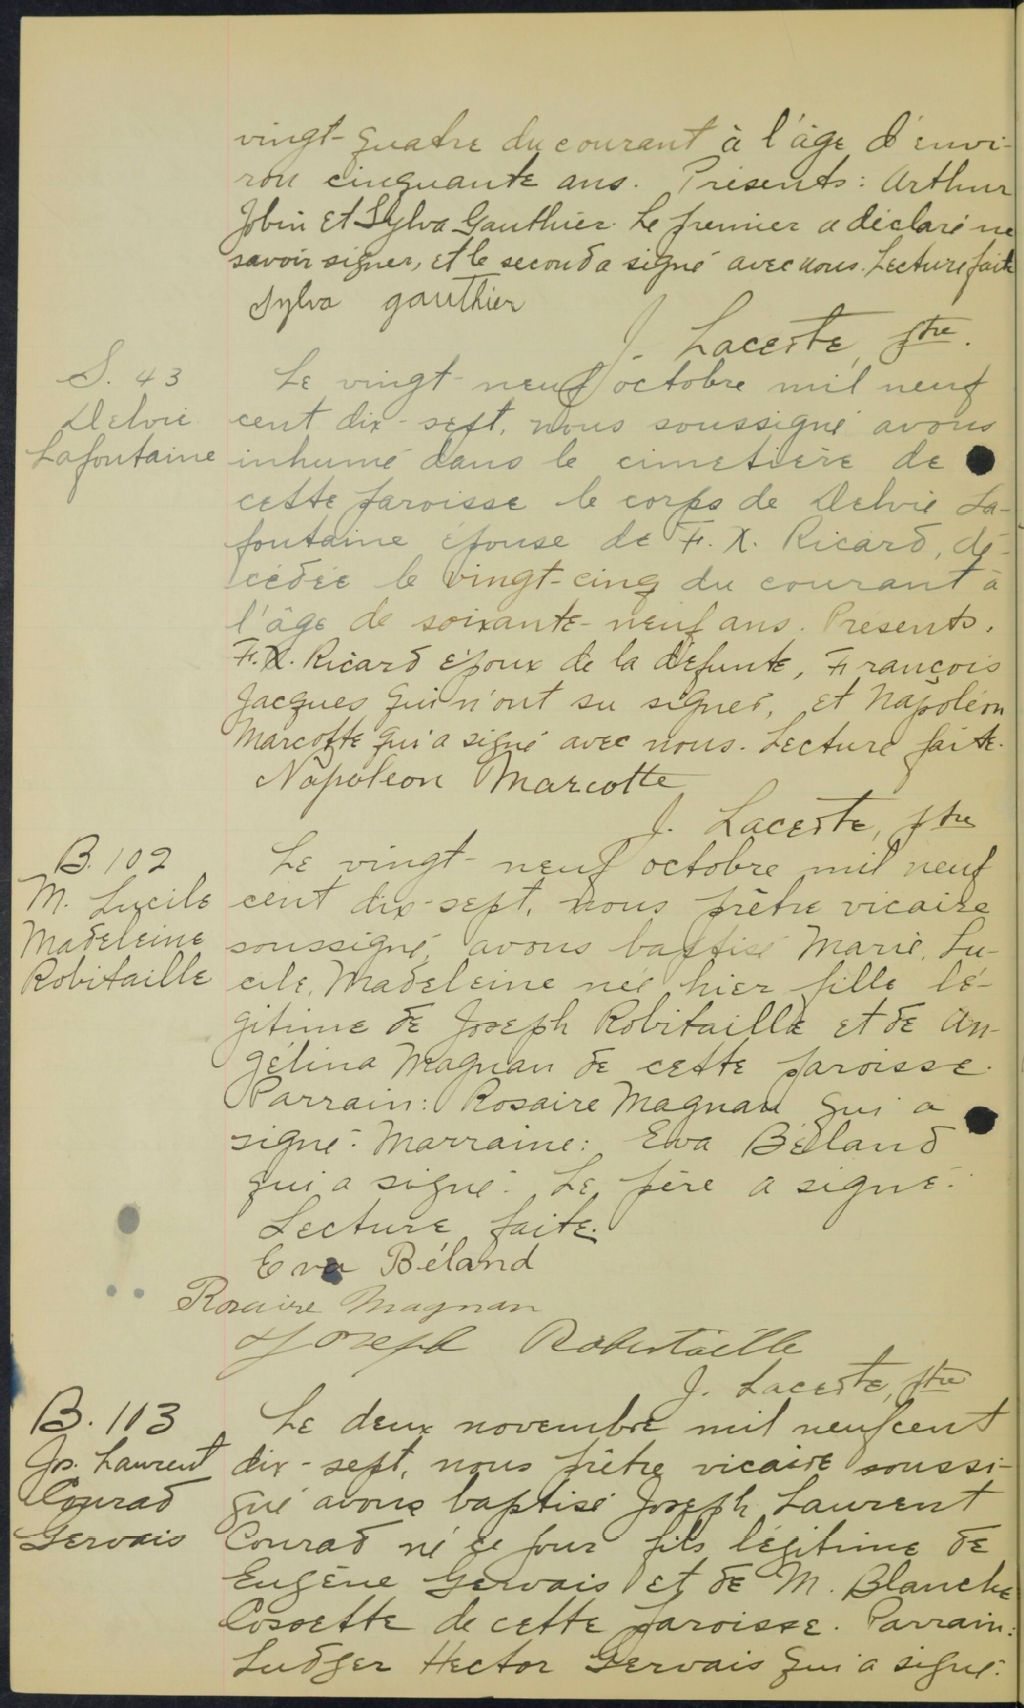 vingt-quatre du courant à l'âge d'envi-
ron cinquante ans. Présents: Arthur
Jobin et Sylva Gauthier. Le premier a déclaré ne
savoir signer, et le second a signé avec nous. Lecture faite
Sylva gauthier
J. Laceste, ptre.
S. 43
Delvie
Lafontaine
Le vingt-neuf octobre mil neuf
cent dix-sept, nous soussigné avons
inhumé dans le cimetière de
cette paroisse le corps de Delvie La-
fontaine épouse de F. X. Ricard, dé-
cédée le vingt-cinq du courant à
l'âge de soixante-neuf ans. Présents.
F.X. Ricard époux de la défunte, François
Jacques qui n'ont su signer, et Napoléon
Marcotte qui a signé avec nous. Lecture faite.
Napoleon Marcotte
J. Laceste, ptre
B. 102
M. Lucile
Madeleine
Robitaille
Le vingt-neuf octobre mil neuf
cent dix-sept, nous prêtre vicaire
soussigné, avons baptisé Marie, Lu-
cile, Madeleine née hier fille lé-
gitime de Joseph Robitaille et de An-
gélina Magnan de cette paroisse.
Parrain: Rosaire Magnan qui a
signé. Marraine: Eva Béland
qui a signé. Le père a signé.
Lecture faite.
Eva Béland
Rosaire Magnan
Joseph Robitaille
J. Laceste, ptre
B. 103
Jos. Laurent
Conrad
Gervais
Le deux novembre mil neuf cent
dix-sept, nous prêtre vicaire soussi-
gné avons baptisé Joseph Laurent
Conrad né ce jour fils légitime de
Eugène Gervais et de M. Blanche
Cossette de cette paroisse. Parrain:
Ludger Hector Gervais qui a signé.